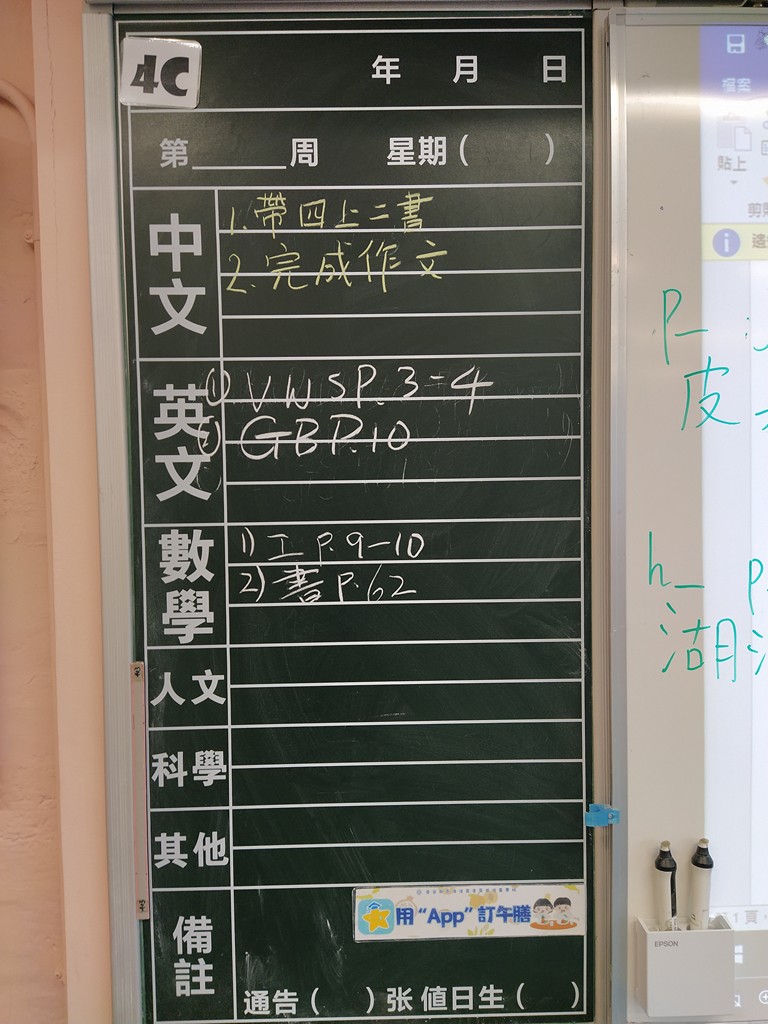 4C
年 月 日
第______周 星期( )
中文
1.帶四上二書
2.完成作文
英文
① VWSP.3-4
② GBP.10
數學
1) 工 P.9-10
2) 書 P.62
人文
科學
其他
備註
用“App”訂午膳
通告( )张 値日生( )
檔案
貼上
剪
p_
皮
h_ p
湖
EPSON